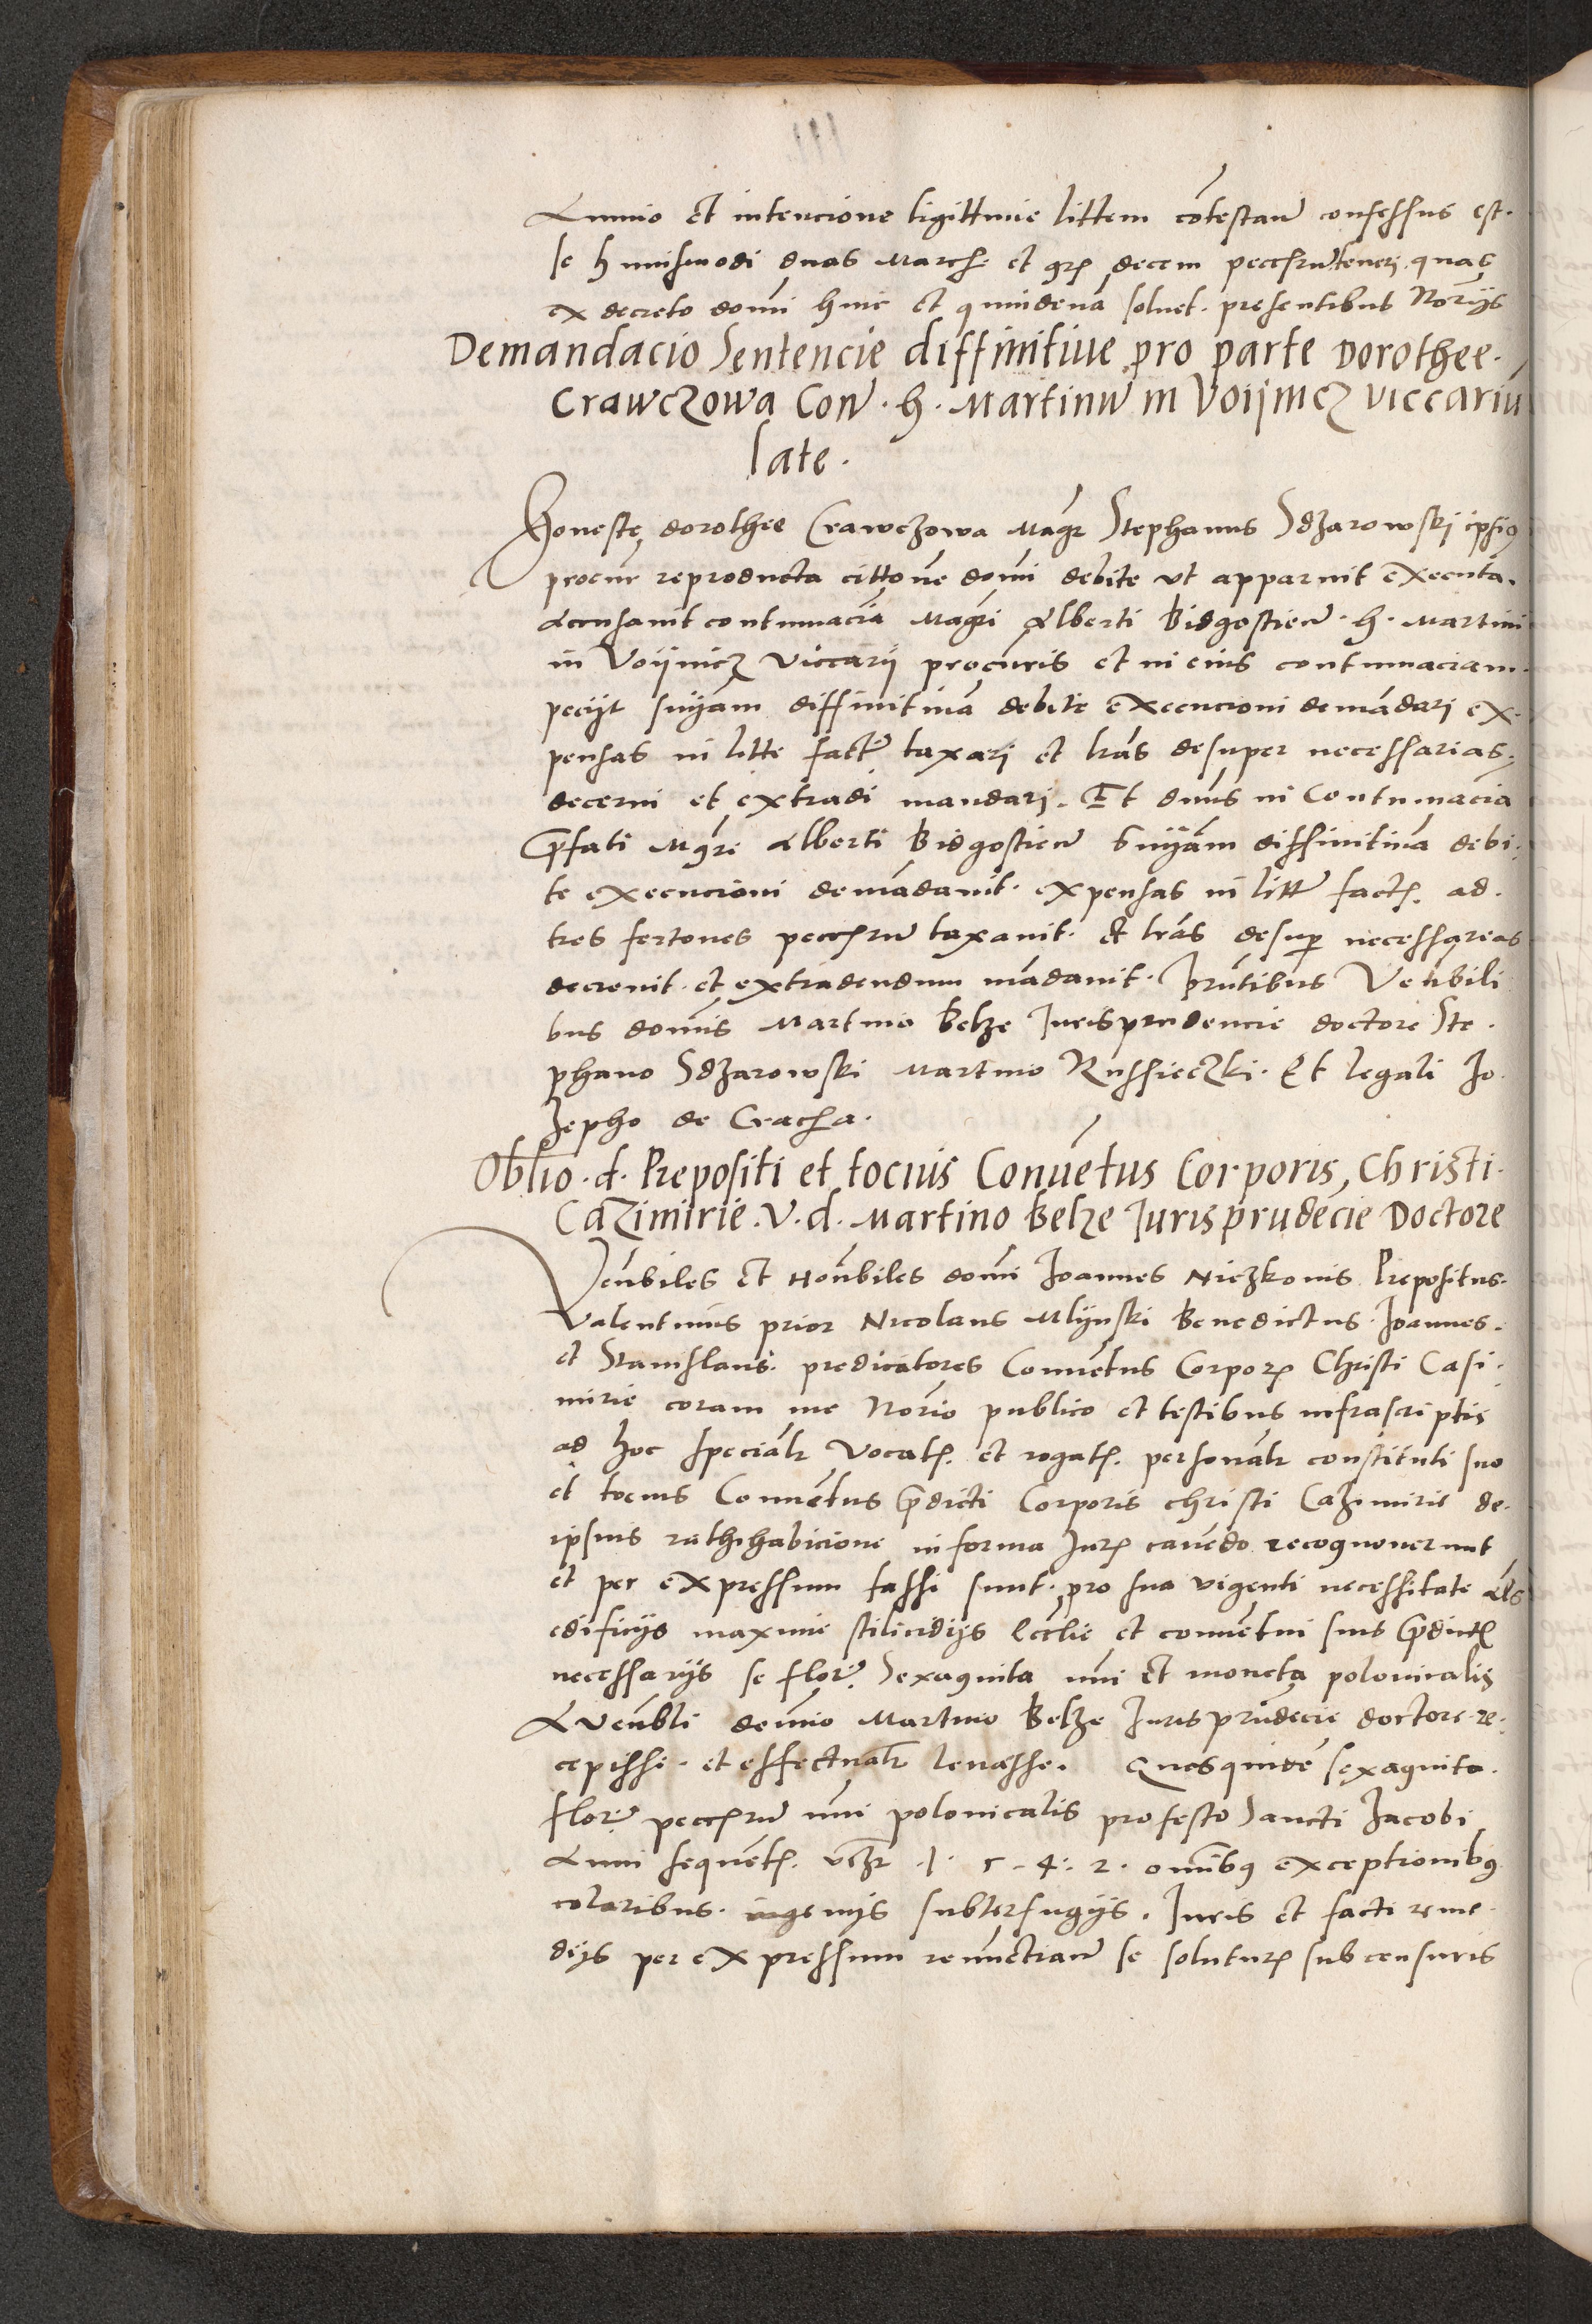 Animo et intencione ligittime littem cōtestanđ confessus est.
se huiusmodi duas March. et grꝭ decem pecchrūteneri quas
ex decreto domi hinc et quindenā soluet. presentibus Norijs
Demandacio Sentencie diffinitiue pro parte Dorothee.
Crawczowa Con̄. h. Martinū in Voijnicz viccariū
late.
Honeste dorothee Crawczowa Magr̄ Stephanus Sdzarowski ipsiꝰ
procur reproducta cittōne domi debite vt apparuit executa.
Accusauit contumaciā Magr̄i Alberti Bidgosticn̄. h. Martini
in Voijnicz viccarij procuris et in eius contumaciam.
peciit sniam̄ diffinitiuā debite execucioni demādari ex
pensas in litte facte taxari et lrās desuper necessarias
decerni et extradi mandari. Et dnūs in Contumacia
p̄fati Mgr̄i Alberti Bidgosticn̄ sniam̄ diffinitiuā debi
te execucioni demādauit. expensas in litt factꝭ. ad.
tres fertones pecchrū taxauit. et lrās desuꝑ necessareas
decreuit. et extradendum mādauit. Prn̄tibus Vetibili
bus domīs Martino Belze Iurisprudencie doctore Ste.
phano Sdzarowski Martino Russieczki. Et legali Io
sepho de Crachᵃ.
Oblio. d. Prepositi et tocius Conuētus Corporis, Christi.
Cazimirie. V. d. Martino Belze Iurisprudēcie Doctore
Ven̄biles et Hon̄biles domī Ioannes Niezkonis Prepositus.
Valentinus prior Nicolaus Mlijnski Benedictus Ioannes.
et Stanislaus. predicatores Conuētus Corporꝭ Christi Casi.
mirie coram me Norio publico et testibus infrascriptis
ad hoc speciāłr vocatꝭ. et rogatꝭ. personałr constituti suo
et tocius Conuētus p̄dicti Corporis christi Cazimirie de.
ipsius rathihabicione in forma Iurꝭ cauēdo recognouerunt
et per expressum fassi sunt. pro sua vigenti necessitate als
edificijs maxime stilicidijs Ecclīe et conuētui suis p̄dictꝭ
necessarijs se flor̄. Sexaginta nūi et moneta polonicalis
A ven̄bli domino Martino Belze Iurisprudēcie doctore re.
cepisse. et effectuałr leuasse. Quosquidē sexaginta.
flor̄ pecchrū nūi polonicalis profesto Sancti Iacobi
Anni sequētꝭ. vcz̄ .1. 5. 4. 2. omībꝰ exceptionibꝰ
coloribus. ingenijs subterfugijs. Iuris et facti reme
dijs per expressum renūctianđ se soluturꝭ sub censuris